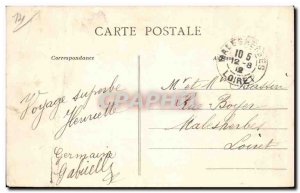 14
CARTE POSTALE
Correspondance
MALESHERBES
10 5
12-8
LOIRET
Voyage superbe
Henriette
Germaine
Gabrielle
Mr et M
Rue Boyer
Malesherbes
Loiret